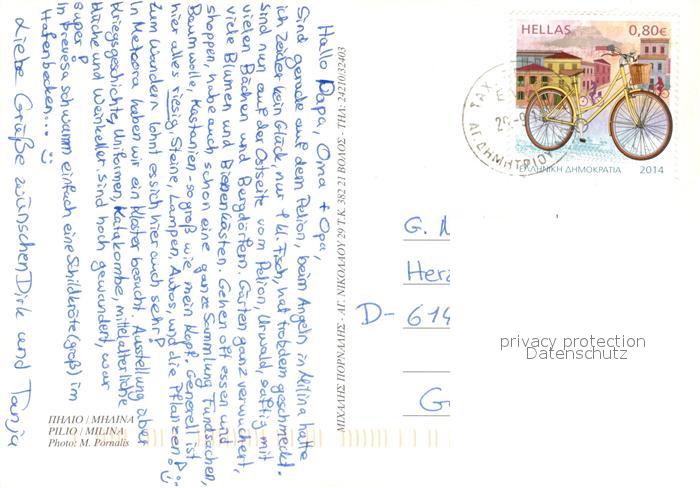 Hallo Papa, Oma + Opa,
Sind gerade auf dem Pelion, beim Angeln in Milina hatte
ich leider kein Glück, nur 1 kl. Fisch, hat trotzdem geschmeckt.
Sind nun auf der Ostseite vom Pelion, Urwald, saftig mit
vielen Bächen und Bergdörfern. Gärten ganz verwuchert,
viele Blumen und Bienenkästen. Gehen oft essen und
shoppen, habe auch schon eine ganze Sammlung Fundsachen,
Baumwolle, Kastanien, so groß wie mein Kopf. Generell ist
hier alles riesig, Steine, Lampen, Autos, und die Pflanzen!
Zum Wandern lohnt es sich hier auch sehr!
In Meteora haben wir ein Kloster besucht. Ausstellung über
Kriegsgeschichte, Uniformen, Katakombe, mittelalterliche
Küche und Weinkeller. sind hoch gewandert, war
super!
In Prevesa schwamm einfach eine Schildkröte (groß) im
Hafenbecken...
Liebe Grüße wünschen Dirk und Tanja
ΠΗΛΙΟ / ΜΗΛΙΝΑ
PILIO / MILINA
Photo: M. Pornalis
ΜΙΧΑΛΗΣ ΠΟΡΝΑΛΗΣ - ΑΓ. ΝΙΚΟΛΑΟΥ 29 Τ.Κ. 382 21 ΒΟΛΟΣ - ΤΗΛ: 24210/32403
HELLAS 0,80€
ΕΛΛΗΝΙΚΗ ΔΗΜΟΚΡΑΤΙΑ 2014
ΑΓ. ΔΗΜΗΤΡΙΟΥ
G.
Her
D- 614
G
privacy protection
Datenschutz